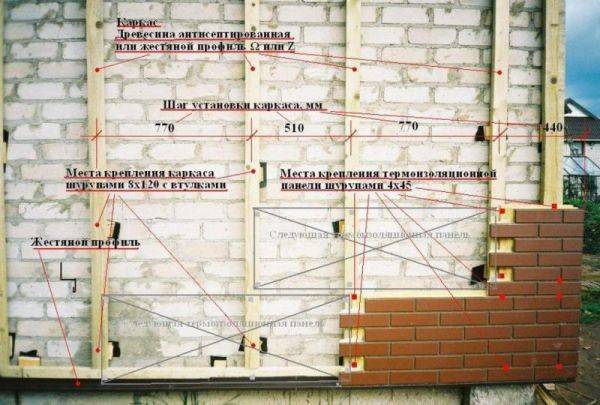 Каркас
Древесина антисептированная
или жестяной профиль Ω или Z
Шаг установки каркаса, мм
770
510
770
440
Места крепления каркаса
шурупами 8х120 с втулками
Места крепления термоизоляционной
панели шурупами 4х45
Следующая термоизоляционная панель
Жестяной профиль
ледующая термоизоляционная панель